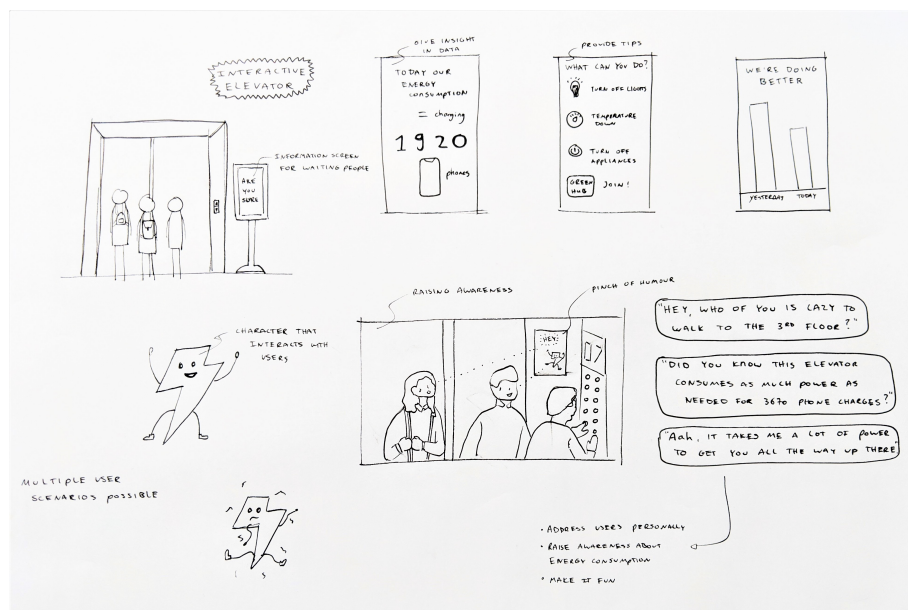 INTERACTIVE
ELEVATOR
INFORMATION SCREEN
FOR WAITING PEOPLE
ARE
YOU
SURE
GIVE INSIGHT
IN DATA
TODAY OUR
ENERGY
CONSUMPTION
= charging
1920
phones
PROVIDE TIPS
WHAT CAN YOU DO?
TURN OFF LIGHTS
TEMPERATURE
DOWN
TURN OFF
APPLIANCES
GREEN
HUB
JOIN!
WE'RE DOING
BETTER
YESTERDAY TODAY
CHARACTER THAT
INTERACTS WITH
USERS
RAISING AWARENESS
PINCH OF HUMOUR
HEY!
7
"HEY, WHO OF YOU IS LAZY TO
WALK TO THE 3RD FLOOR?"
"DID YOU KNOW THIS ELEVATOR
CONSUMES AS MUCH POWER AS
NEEDED FOR 3670 PHONE CHARGES?"
"Aah, IT TAKES ME A LOT OF POWER
TO GET YOU ALL THE WAY UP THERE"
MULTIPLE USER
SCENARIOS POSSIBLE
• ADDRESS USERS PERSONALLY
• RAISE AWARENESS ABOUT
ENERGY CONSUMPTION
• MAKE IT FUN